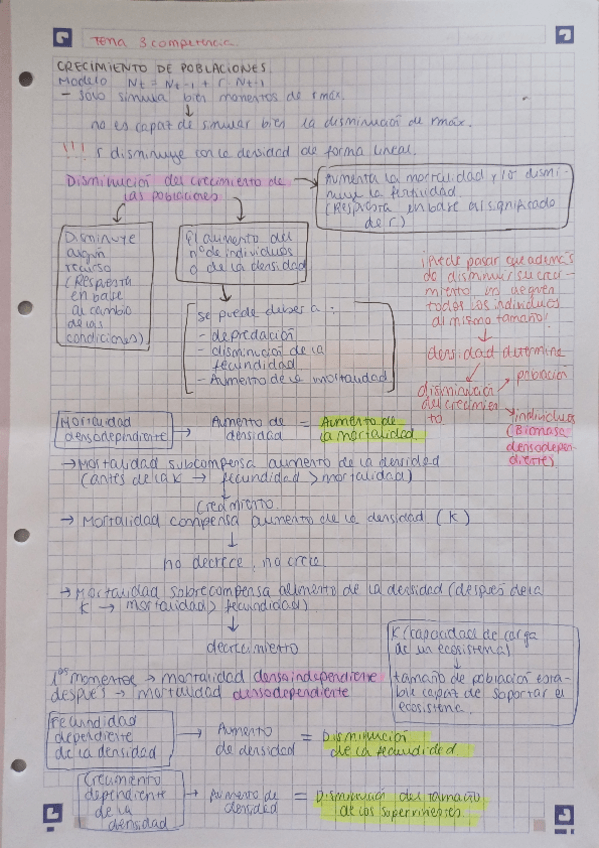 Tema 3. competencia.
CRECIMIENTO DE POBLACIONES
Modelo Nt = Nt-1 + r Nt-1
- Solo simula bien momentos de rmáx.
no es capaz de simular bien la disminución de rmáx.
!!! r disminuye con la densidad de forma lineal.
Disminución del crecimiento de
las poblaciones
Aumenta la mortalidad y/o dismi-
nuye la fertilidad
(Respuesta en base al significado
de r)
Disminuye
algún
recurso
(Respuesta
en base
al cambio
de las
condiciones)
El aumento del
nº de individuos
o de la densidad
se puede deber a:
- depredación
- disminución de la
fecundidad
- Aumento de la mortalidad
¡Puede pasar que además
de disminuir su creci-
miento no lleguen
todos los individuos
al mismo tamaño!
densidad determina
disminución
del crecimien-
to
población
individuos
(Biomasa
densodepen-
diente)
Mortalidad
densodependiente → Aumento de
densidad = Aumento de
la mortalidad.
→ Mortalidad subcompensa aumento de la densidad
(antes de la K → fecundidad > mortalidad)
Crecimiento
→ Mortalidad compensa aumento de la densidad (K)
no decrece, no crece
→ Mortalidad sobrecompensa aumento de la densidad (después de la
K → mortalidad > fecundidad)
decrecimiento
K (capacidad de carga
de un ecosistema)
tamaño de población esta-
ble capaz de soportar el
ecosistema.
1os momentos → mortalidad densoindependiente
después → mortalidad densodependiente
Fecundidad
dependiente
de la densidad → Aumento
de densidad = Disminución
de la fecundidad
Crecimiento
dependiente
de la
densidad → Aumento de
densidad = Disminución del tamaño
de los supervivientes.